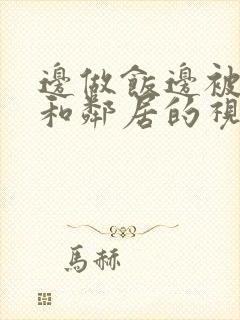 邊做飯邊被
和鄰居的視
馬赫